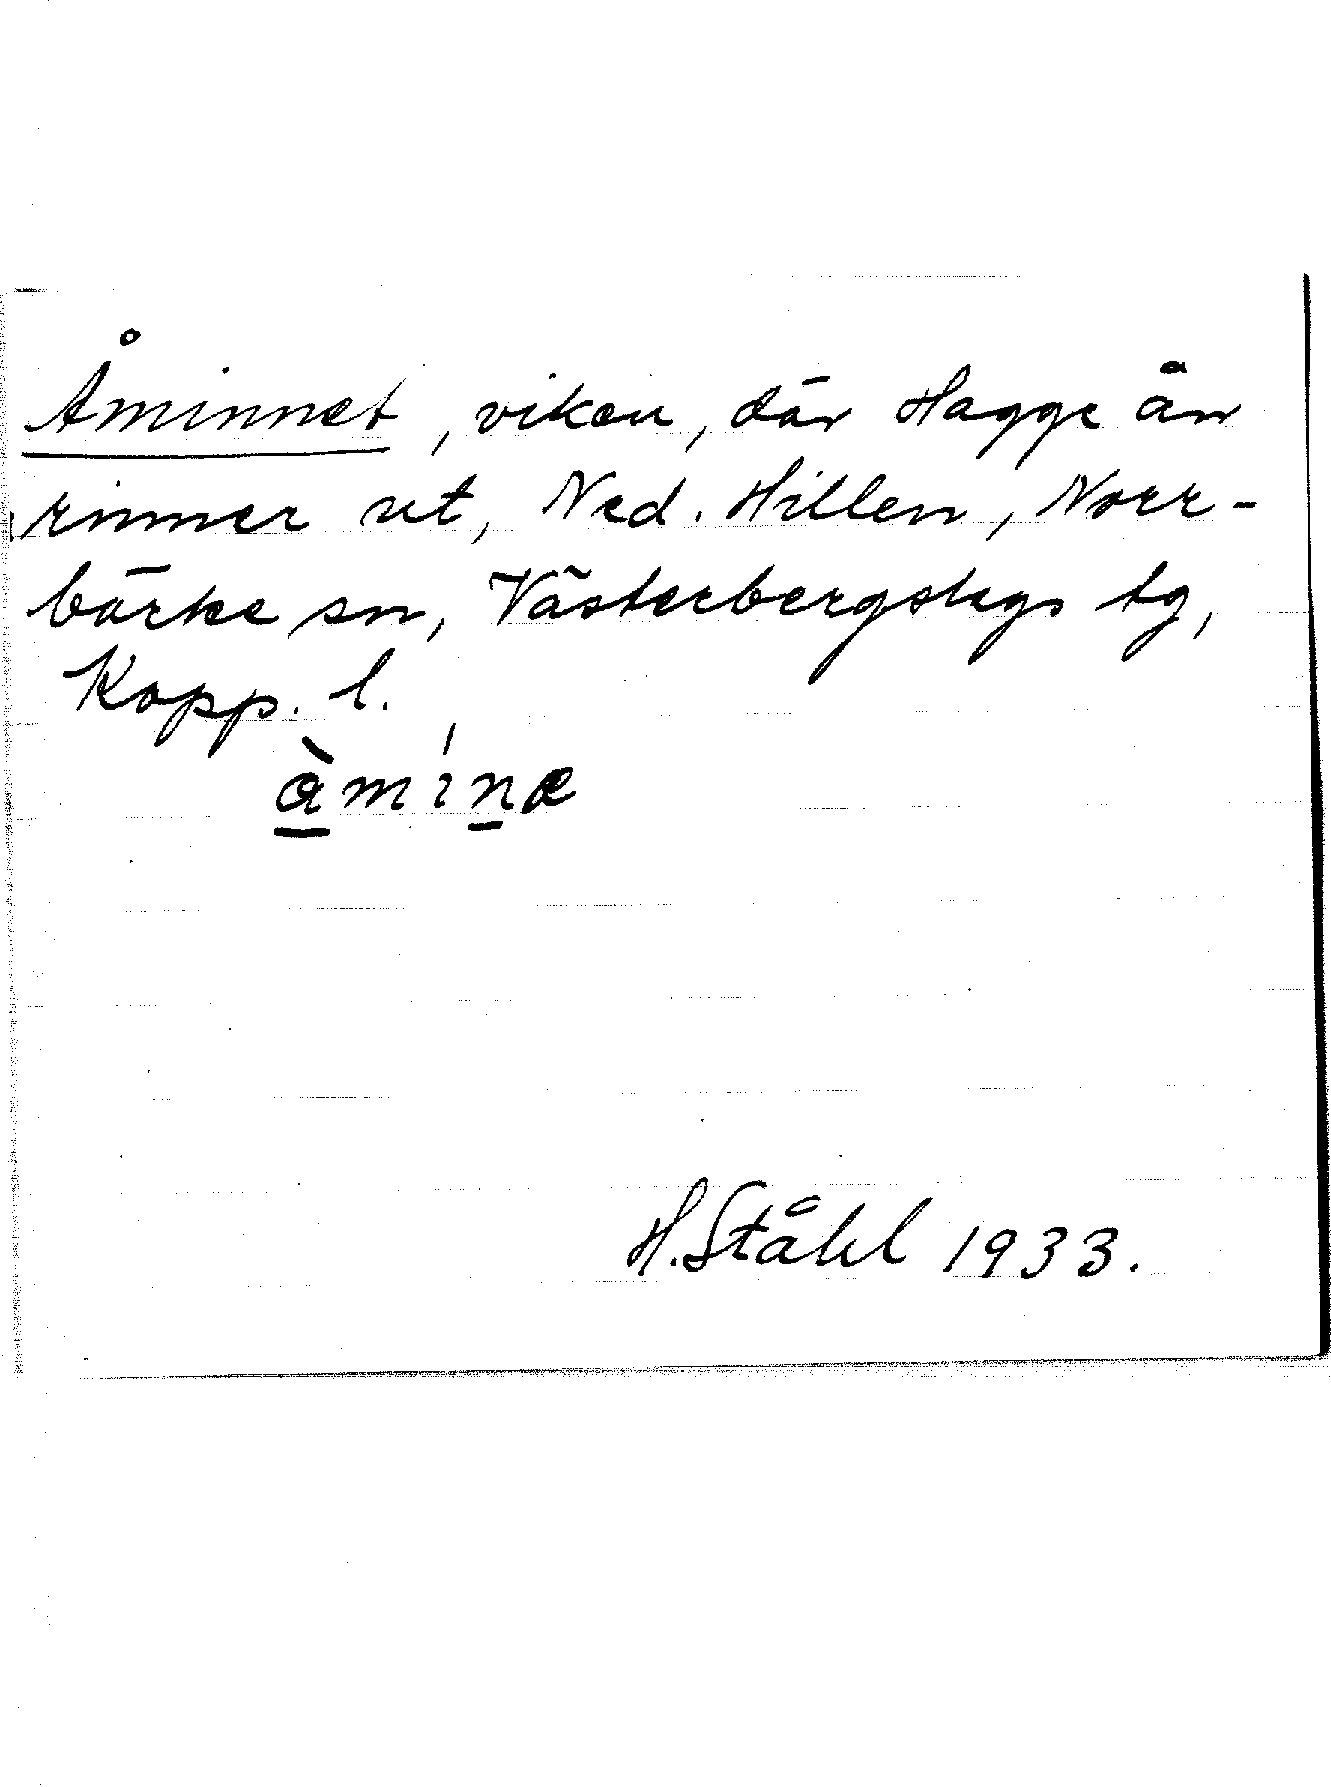 Åminnet, viken, där Hagge ån
rinner ut, Ned. Hillen, Norr-
bärke sn, Västerbergslags tg,
Kopp. l.
àmínæ
H. Ståhl 1933.